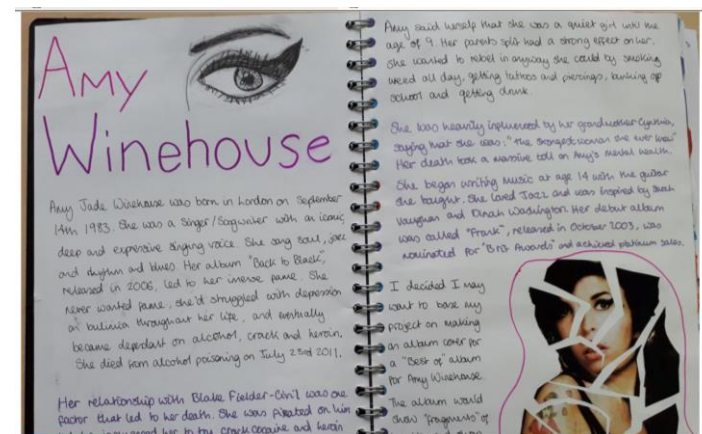 Amy
Winehouse
Amy Jade Winehouse was born in London on September
14th 1983. She was a Singer/Songwriter with an iconic
deep and expressive singing voice. She sang soul, jazz
and rhythm and blues. Her album "Back to Black",
released in 2006, led to her imense fame. She
never wanted fame, she'd struggled with depression
an bulimia throughout her life, and eventually
became dependant on alcohol, crack and heroin.
She died from alcohol poisoning on July 23rd 2011.
Her relationship with Blake Fielder-Civil was one
factor that led to her death. She was fixated on him
her to try crack cocaine and heroin
Amy said herself that she was a quiet girl until the
age of 9. Her parents split had a strong effect on her.
She wanted to rebel in anyway she could by smoking
weed all day, getting tattoos and piercings, bunking off
school and getting drunk.
She was heavily influenced by her grandmother Cynthia,
saying that she was: "the strongest woman she ever knew"
Her death took a massive toll on Amy's mental health.
She began writing music at age 14 with the guitar
she bought. She loved Jazz and was inspired by Sarah
Vaughan and Dinah Washington. Her debut album
was called "Frank", released in October 2003, was
nominated for "Brit Awards" and achieved platinum sales.
I decided I may
want to base my
project on making
an album cover for
a "Best of" album
for Amy Winehouse.
The album would
show "fragments" of